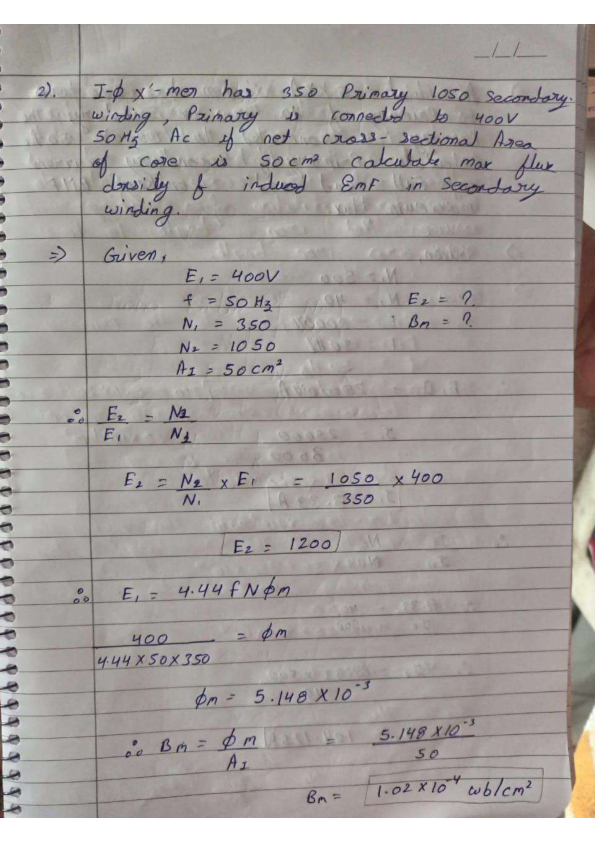 _/_/_
2). 1-ϕ X'-mer has 350 Primary 1050 Secondary.
winding, Primary is connected to 400V
50Hz Ac if net cross-sectional Area
of core is 50cm² calculate max flux
density & induced EmF in secondary
winding.
⇒ Given,
E₁ = 400V
f = 50Hz E₂ = ?
N₁ = 350 Bm = ?
N₂ = 1050
A₁ = 50cm²
∴ E₂/E₁ = N₂/N₁
E₂ = N₂/N₁ × E₁ = 1050/350 × 400
E₂ = 1200
∴ E₁ = 4.44 f N ϕm
400/4.44×50×350 = ϕm
ϕm = 5.148 × 10⁻³
∴ Bm = ϕm/A₁ = 5.148×10⁻³/50
Bm = 1.02×10⁻⁴ wb/cm²